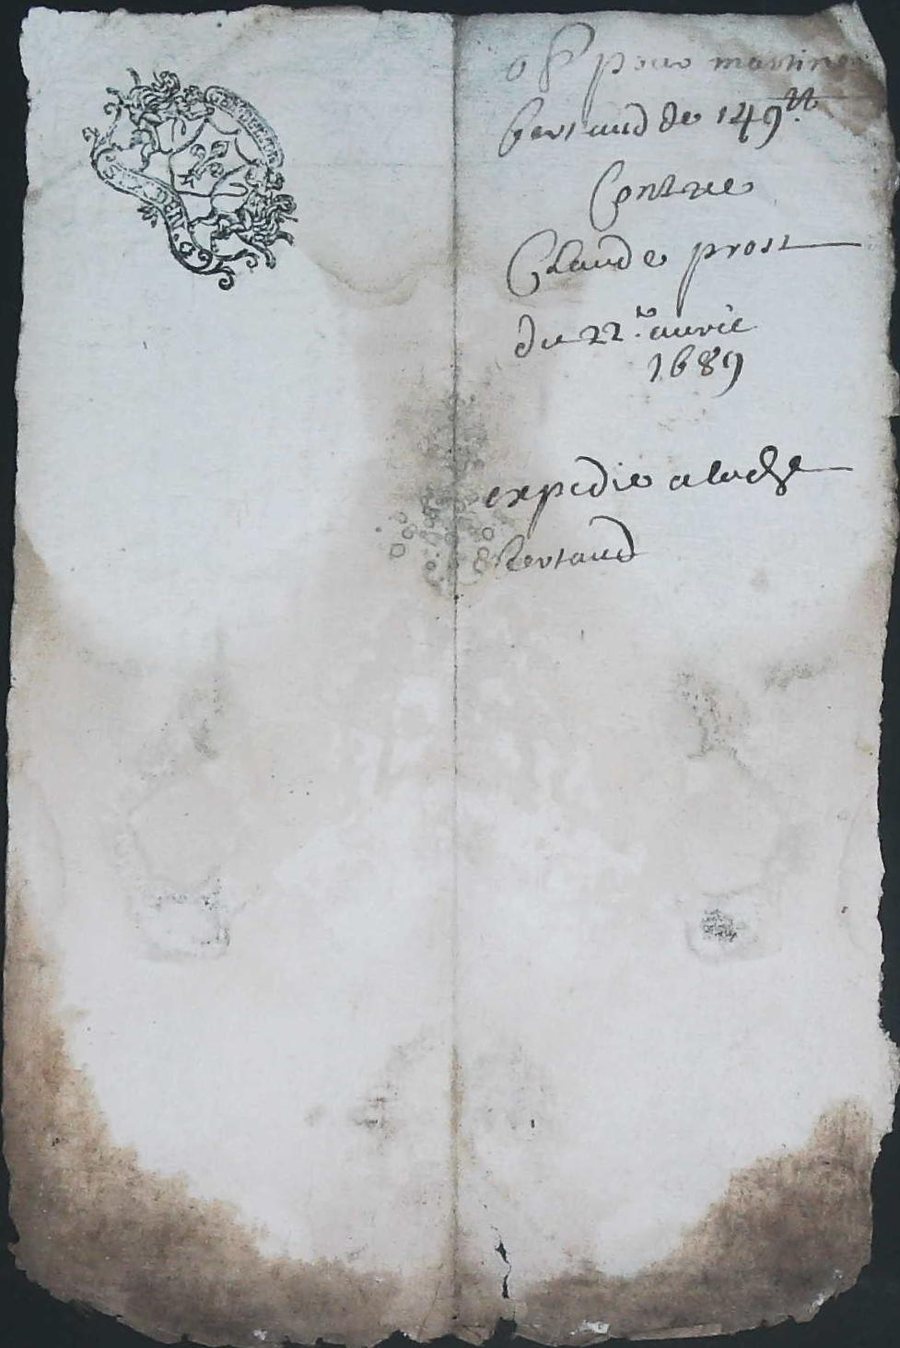 obl pour martine
bertaud de 149ᵗᵗ
Contre
Claude prost
du 22.e auvril
1689
expedie a ladte
Bertaud